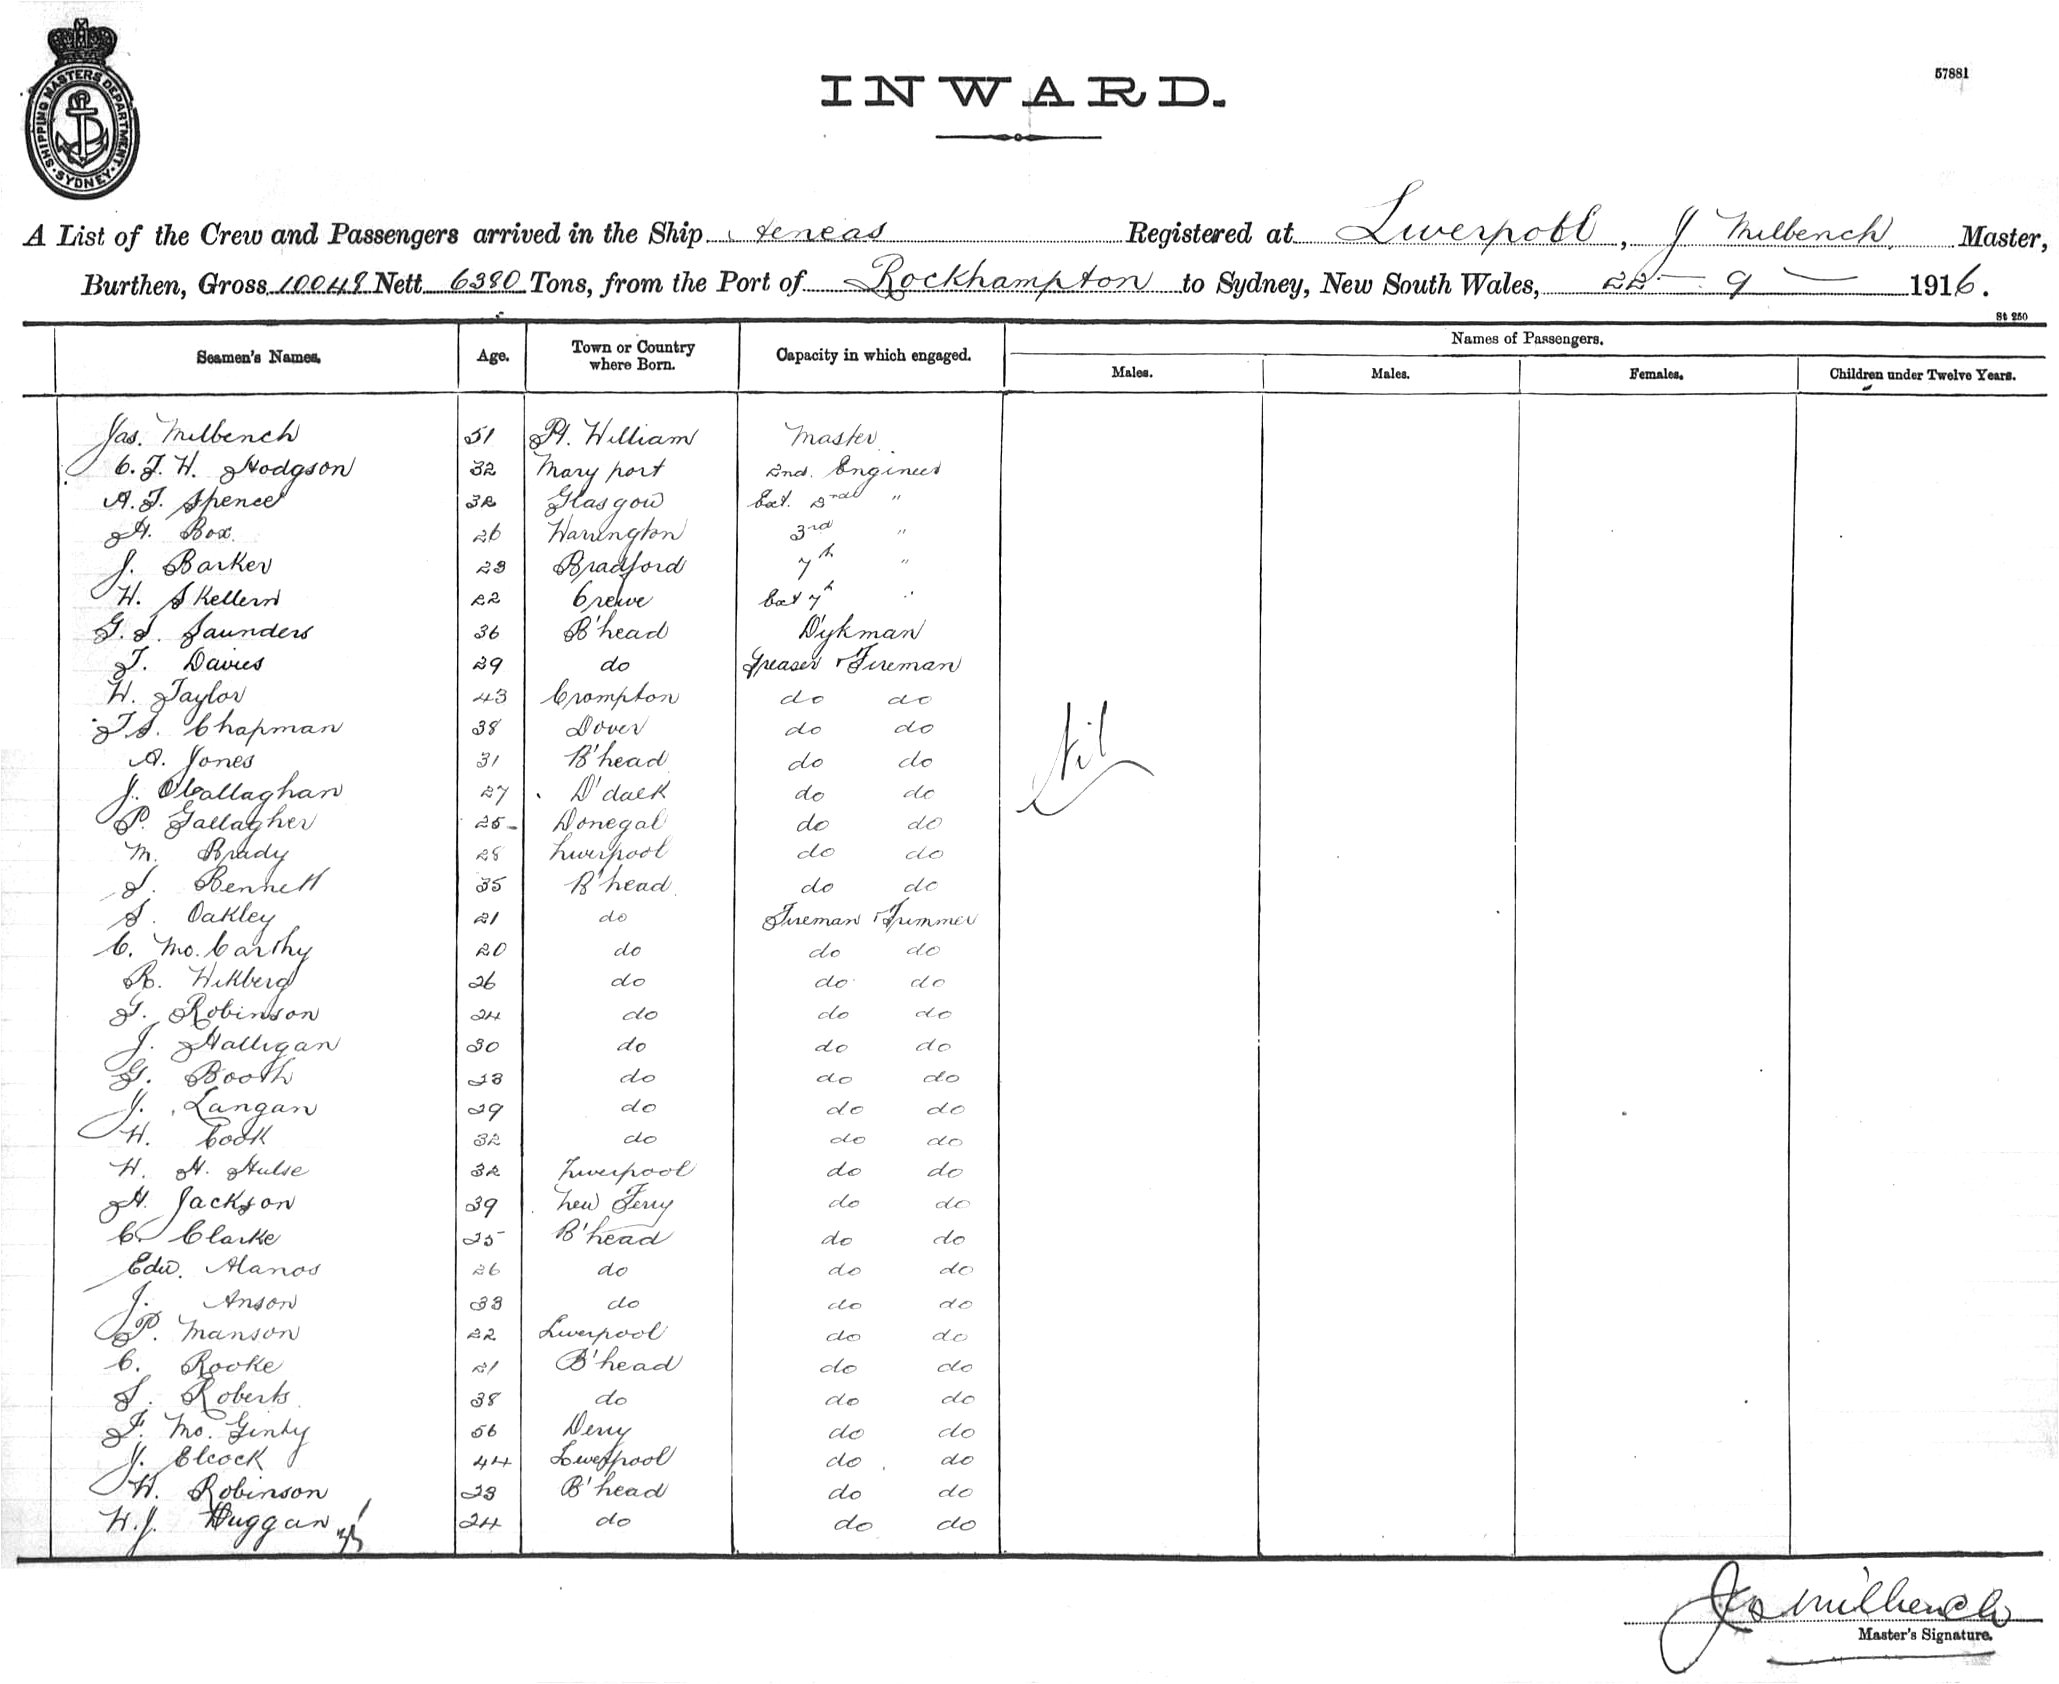 SHIPPING MASTERS DEPARTMENT SYDNEY
57881
INWARD.
A List of the Crew and Passengers arrived in the Ship Aeneas Registered at Liverpool, J Milbench Master,
Burthen, Gross 10048 Nett 6380 Tons, from the Port of Rockhampton to Sydney, New South Wales, 22 - 9 - 1916.
St 250
Seamen's Names. Age. Town or Country where Born. Capacity in which engaged. Names of Passengers.
Males. Males. Females. Children under Twelve Years.
Jas. Milbench 51 Pt. William Master
C. J. W. Hodgson 32 Mary port 2nd. Engineer
A. J. Spence 32 Glasgow Ext. 2nd "
H. Box 26 Warrington 3rd "
J. Barker 23 Bradford 7th "
W. Skellern 22 Crewe Ext 7th "
G. S. Saunders 36 B'head D'ykman
T. Davies 29 do Greaser & Fireman
W. Taylor 43 Crompton do do
T S. Chapman 38 Dover do do
A. Jones 31 B'head do do
J. O'Callaghan 27 D'dalk do do
P. Gallagher 25 Donegal do do
M. Brady 28 Liverpool do do
S. Bennett 35 B'head do do
S. Oakley 21 do Fireman & Trimmer
C. Mc. Carthy 20 do do do
R. Wikberg 26 do do do
T. Robinson 24 do do do
J. Halligan 30 do do do
G. Booth 23 do do do
J. Langan 29 do do do
W. Cook 32 do do do
W. H. Hulse 32 Liverpool do do
H. Jackson 39 New Ferry do do
C. Clarke 25 B'head do do
Edw. Alanos 26 do do do
J. Anson 33 do do do
P. Manson 22 Liverpool do do
C. Rooke 21 B'head do do
S. Roberts 38 do do do
F. Mc. Ginty 56 Derry do do
J. Elcock 44 Liverpool do do
W. Robinson 23 B'head do do
W. J. Duggan 24 do do do
Nil
Jas Milbench
Master's Signature.